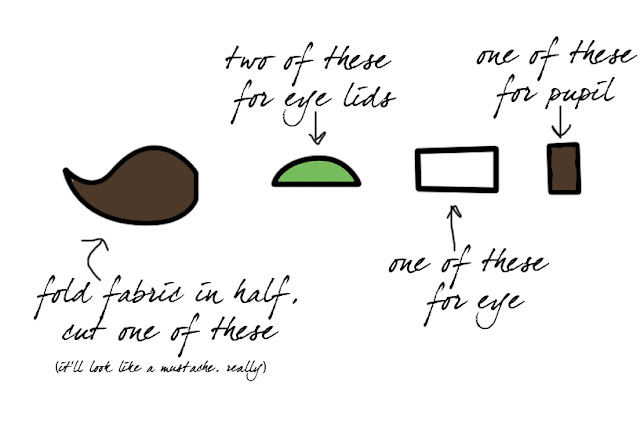 two of these
for eye lids
one of these
for pupil
one of these
for eye
fold fabric in half,
cut one of these
(it'll look like a mustache. really)